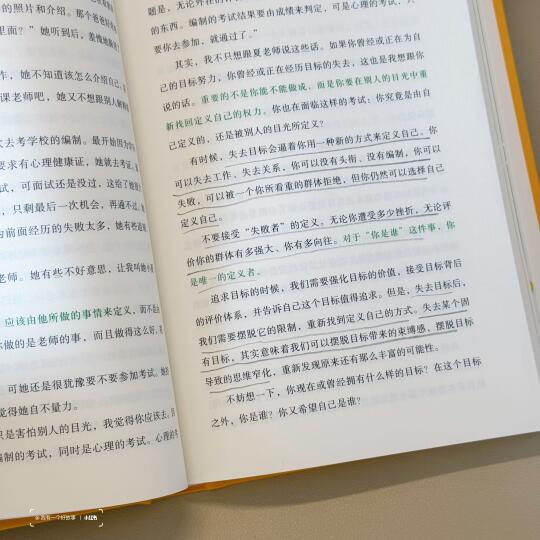 的照片和介绍。那个爸爸好
里面？”她听到后，羞愧地
作，她不知道该怎么介绍自己，
课老师吧，她又不想跟别人解释
次去考学校的编制。最开始因为学
要求有心理健康证，她就去考证。
试，可面试还是没过，这给了她很
，只剩最后一次机会，再通不过，她
为前面经历的失败太多，她有些迟疑
老师。她有些不好意思，让我叫她小夏
应该由他所做的事情来定义，而不是由
你做的是老师的事，而且做得这么好，
可她还是很犹豫要不要参加考试。她
觉得她自不量力。
只是害怕别人的目光，我觉得你应该去，因
编制的考试，同时是心理的考试。心理的考
题是，无论外在的
的东西。编制的考试结果要由成绩来判定，可是心理的考试，只
要你去参加，就通过了。”
其实，我不只想跟夏老师说这些话。如果你曾经或正在为自
己的目标努力，你曾经或正在经历目标的失去，这也是我想跟你
说的话。重要的不是你能不能做成，而是你要在别人的目光中重
新找回定义自己的权力。你也在面临这样的考试：你究竟是由自
己定义的，还是被别人的目光所定义？
有时候，失去目标会逼着你用一种新的方式来定义自己。你
可以失去工作、失去关系，你可以没有头衔、没有编制，你可以
失败，可以被一个你所看重的群体拒绝，但你仍然可以选择自己
定义自己。
不要接受“失败者”的定义。无论你遭受多少挫折，无论评
价你的群体有多强大、你有多向往。对于“你是谁”这件事，你
是唯一的定义者。
追求目标的时候，我们需要强化目标的价值，接受目标背后
的评价体系，并告诉自己这个目标值得追求。但是，失去目标后，
我们需要摆脱它的限制，重新找到定义自己的方式。失去某个固
有目标，其实意味着我们可以摆脱目标带来的束缚感，摆脱目标
导致的思维窄化，重新发现原来还有那么丰富的可能性。
不妨想一下，你现在或曾经拥有什么样的目标？在这个目标
之外，你是谁？你又希望自己是谁？
小红书